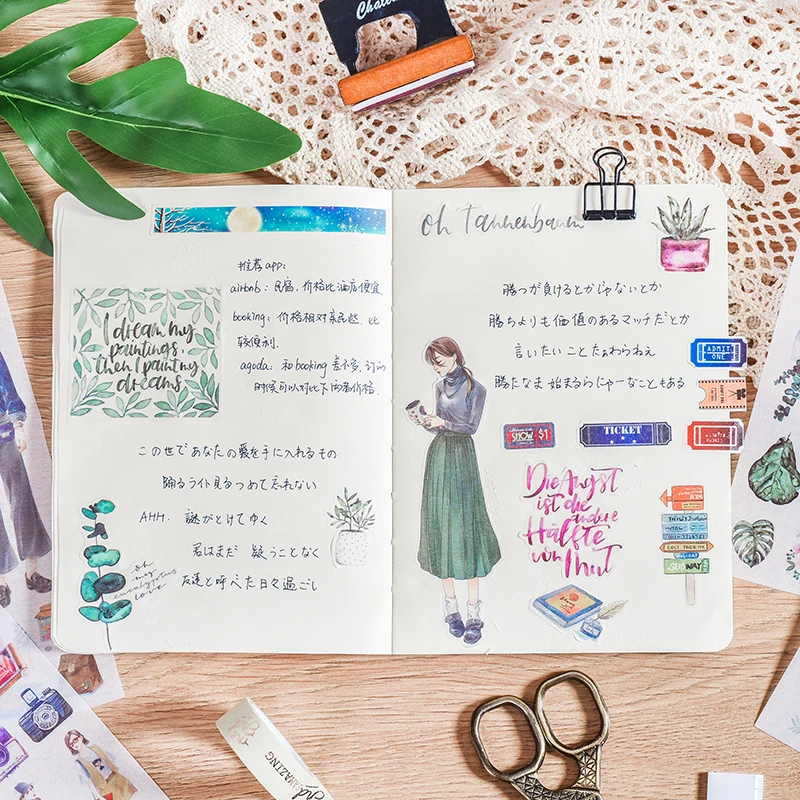 oh Tannenbaum
推荐app:
airbnb: 民宿，价格比酒店便宜.
booking: 价格相对亲民些，比
较便利.
agoda: 和booking 差不多，订的
时候可以对比下的看价格.
I dream my
paintings,
then I paint my
dreams
この世であなたの愛を手に入れるもの
踊るライト見るつめて忘れない
AHH. 謎がとけてゆく
君はまだ 疑うことなく
友達と呼べた日々過ごし
oh
my
eucalyptus
love
勝つが負けるとかじゃないとか
勝ちよりも価値のあるマッチだとか
言いたいことたぁわらねぇ
勝たなま 始まるらにゃーなこともある
ADMIT
ONE
SHOW $1
TICKET
Die Angst
ist die
andere
Hälfte
von Mut
EASY PARKING
HOLIDAY
SUBWAY
AMAZING